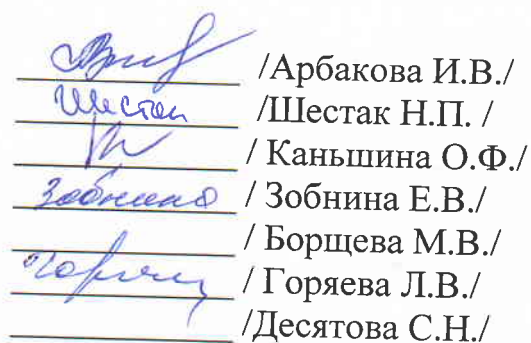 /Арбакова И.В./
Шестак /Шестак Н.П. /
/ Каньшина О.Ф./
Зобнина / Зобнина Е.В./
/ Борщева М.В./
/ Горяева Л.В./
/Десятова С.Н./